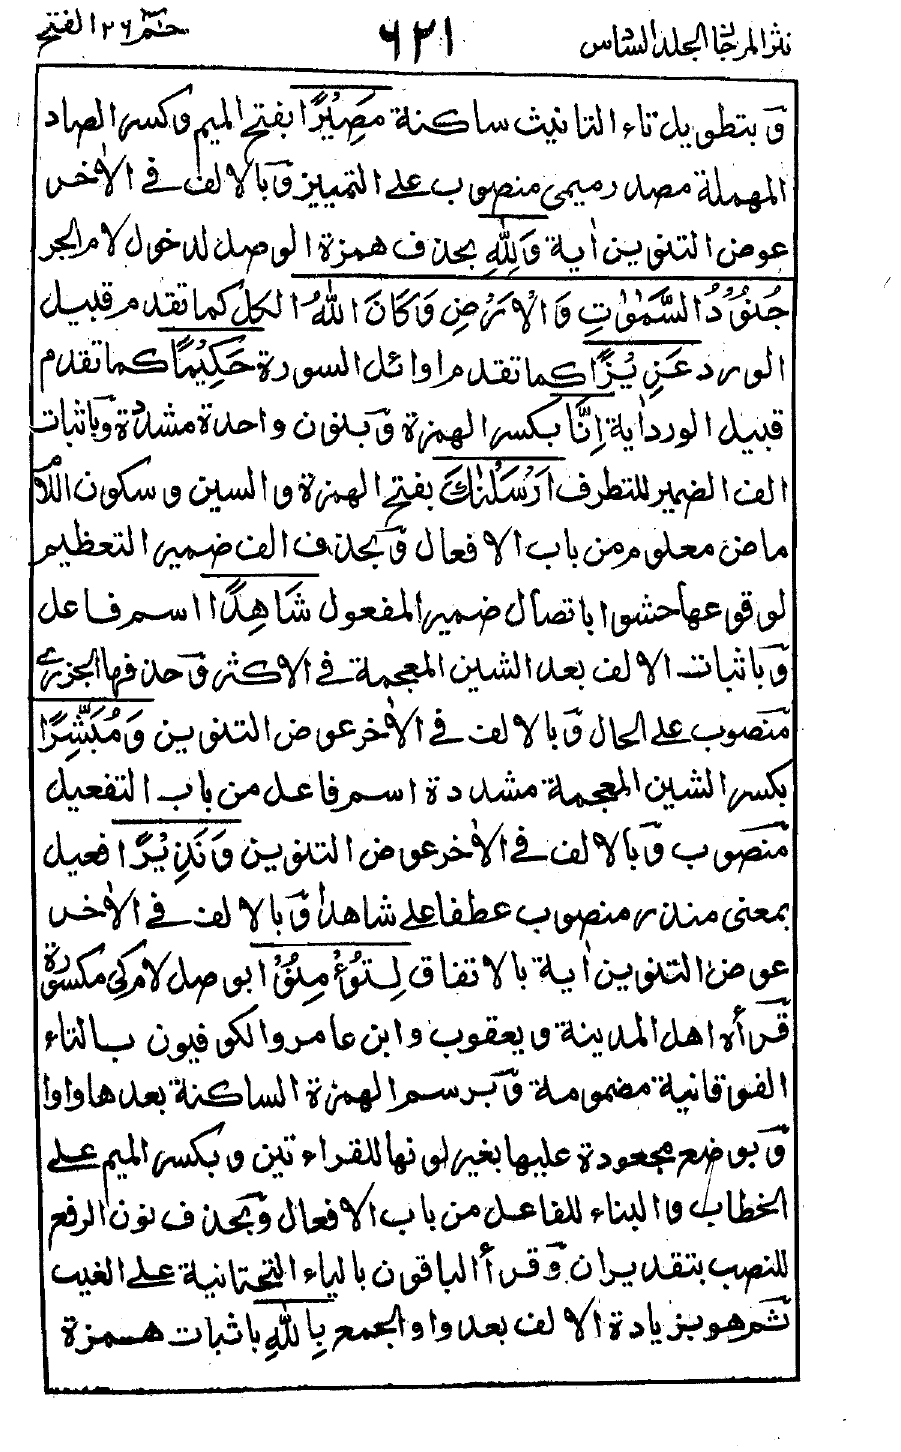 نثر المرجان المجلد السادس ٦٢١ حٰم ٢٦ الفتح
وَبتطويل تاء التانيث ساكنة مَصِيْرًا بفتح الميم وكسر الصاد
المهملة مصدر ميمى منصوب على التمييز وَبالالف فى الاٰخر
عوض التنوين اٰية وَلِلّٰهِ بحذف همزة الوصل لدخول لام الجر
جُنُوْدُ السَّمٰوٰتِ وَالْاَرْضِ وَكَانَ اللّٰهُ الكل كما تقدم قبيل
الورد عَزِيْزًا كما تقدم اوائل السورة حَكِيْمًا كما تقدم
قبيل الورد اٰية اِنَّا بكسر الهمزة وَبنون واحدة مشددة وَباثبات
الف الضمير للتطرف اَرْسَلْنٰكَ بفتح الهمزة والسين وسكون اللام
ماض معلوم من باب الافعال وَبحذف الف ضمير التعظيم
لوقوعها حشوا باتصال ضمير المفعول شَاهِدًا اسم فاعل
وَباثبات الالف بعد الشين المعجمة فى الاكثر وَحذفها الجزرى
منصوب على الحال وَبالالف فى الاٰخر عوض التنوين وَمُبَشِّرًا
بكسر الشين المعجمة مشددة اسم فاعل من باب التفعيل
منصوب وَبالالف فى الاٰخر عوض التنوين وَنَذِيْرًا فعيل
بمعنى منذر منصوب عطفا على شاهدا وَبالالف فى الاٰخر
عوض التنوين اٰية بالاتفاق لِتُؤْمِنُوْا بوصل لام كى مكسورة
قرأه اهل المدينة ويعقوب وابن عامر والكوفيون بالتاء
الفوقانية مضمومة وَبرسم الهمزة الساكنة بعدها واوا
وَبوضع مجعودة عليها بغير لونها للقراءتين وبكسر الميم على
الخطاب والبناء للفاعل من باب الافعال وَبحذف نون الرفع
للنصب بتقدير ان وَقرأ الباقون بالياء التحتانية على الغيب
ثم هو بزيادة الالف بعد واو الجمع بِاللّٰهِ باثبات همزة